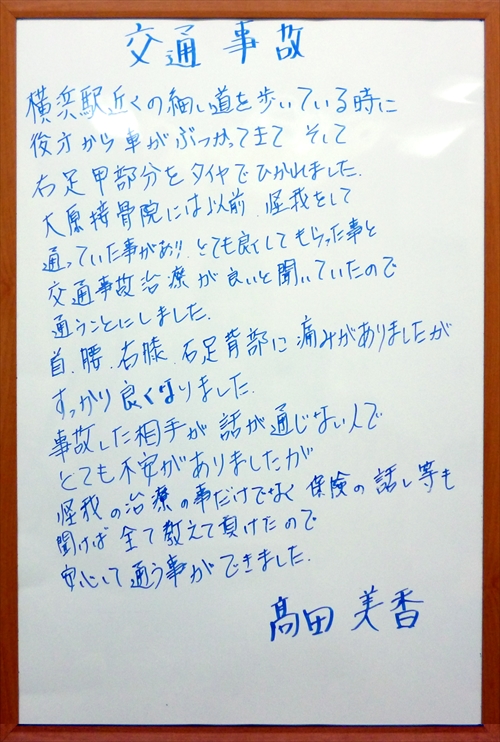 交通事故
横浜駅近くの細い道を歩いている時に
後方から車がぶつかってきて そして
右足甲部分をタイヤでひかれました.
大原接骨院には以前.怪我をして
通っていた事があり!.とても良くしてもらった事と
交通事故治療が良いと聞いていたので
通うことにしました.
首.腰.右膝.右足背部に痛みがありましたが
すっかり良くなりました.
事故した相手が話が通じない人で
とても不安がありましたが
怪我の治療の事だけでなく 保険の話し等も
聞けば全て教えて頂けたので
安心して通う事ができました.
髙田 美香